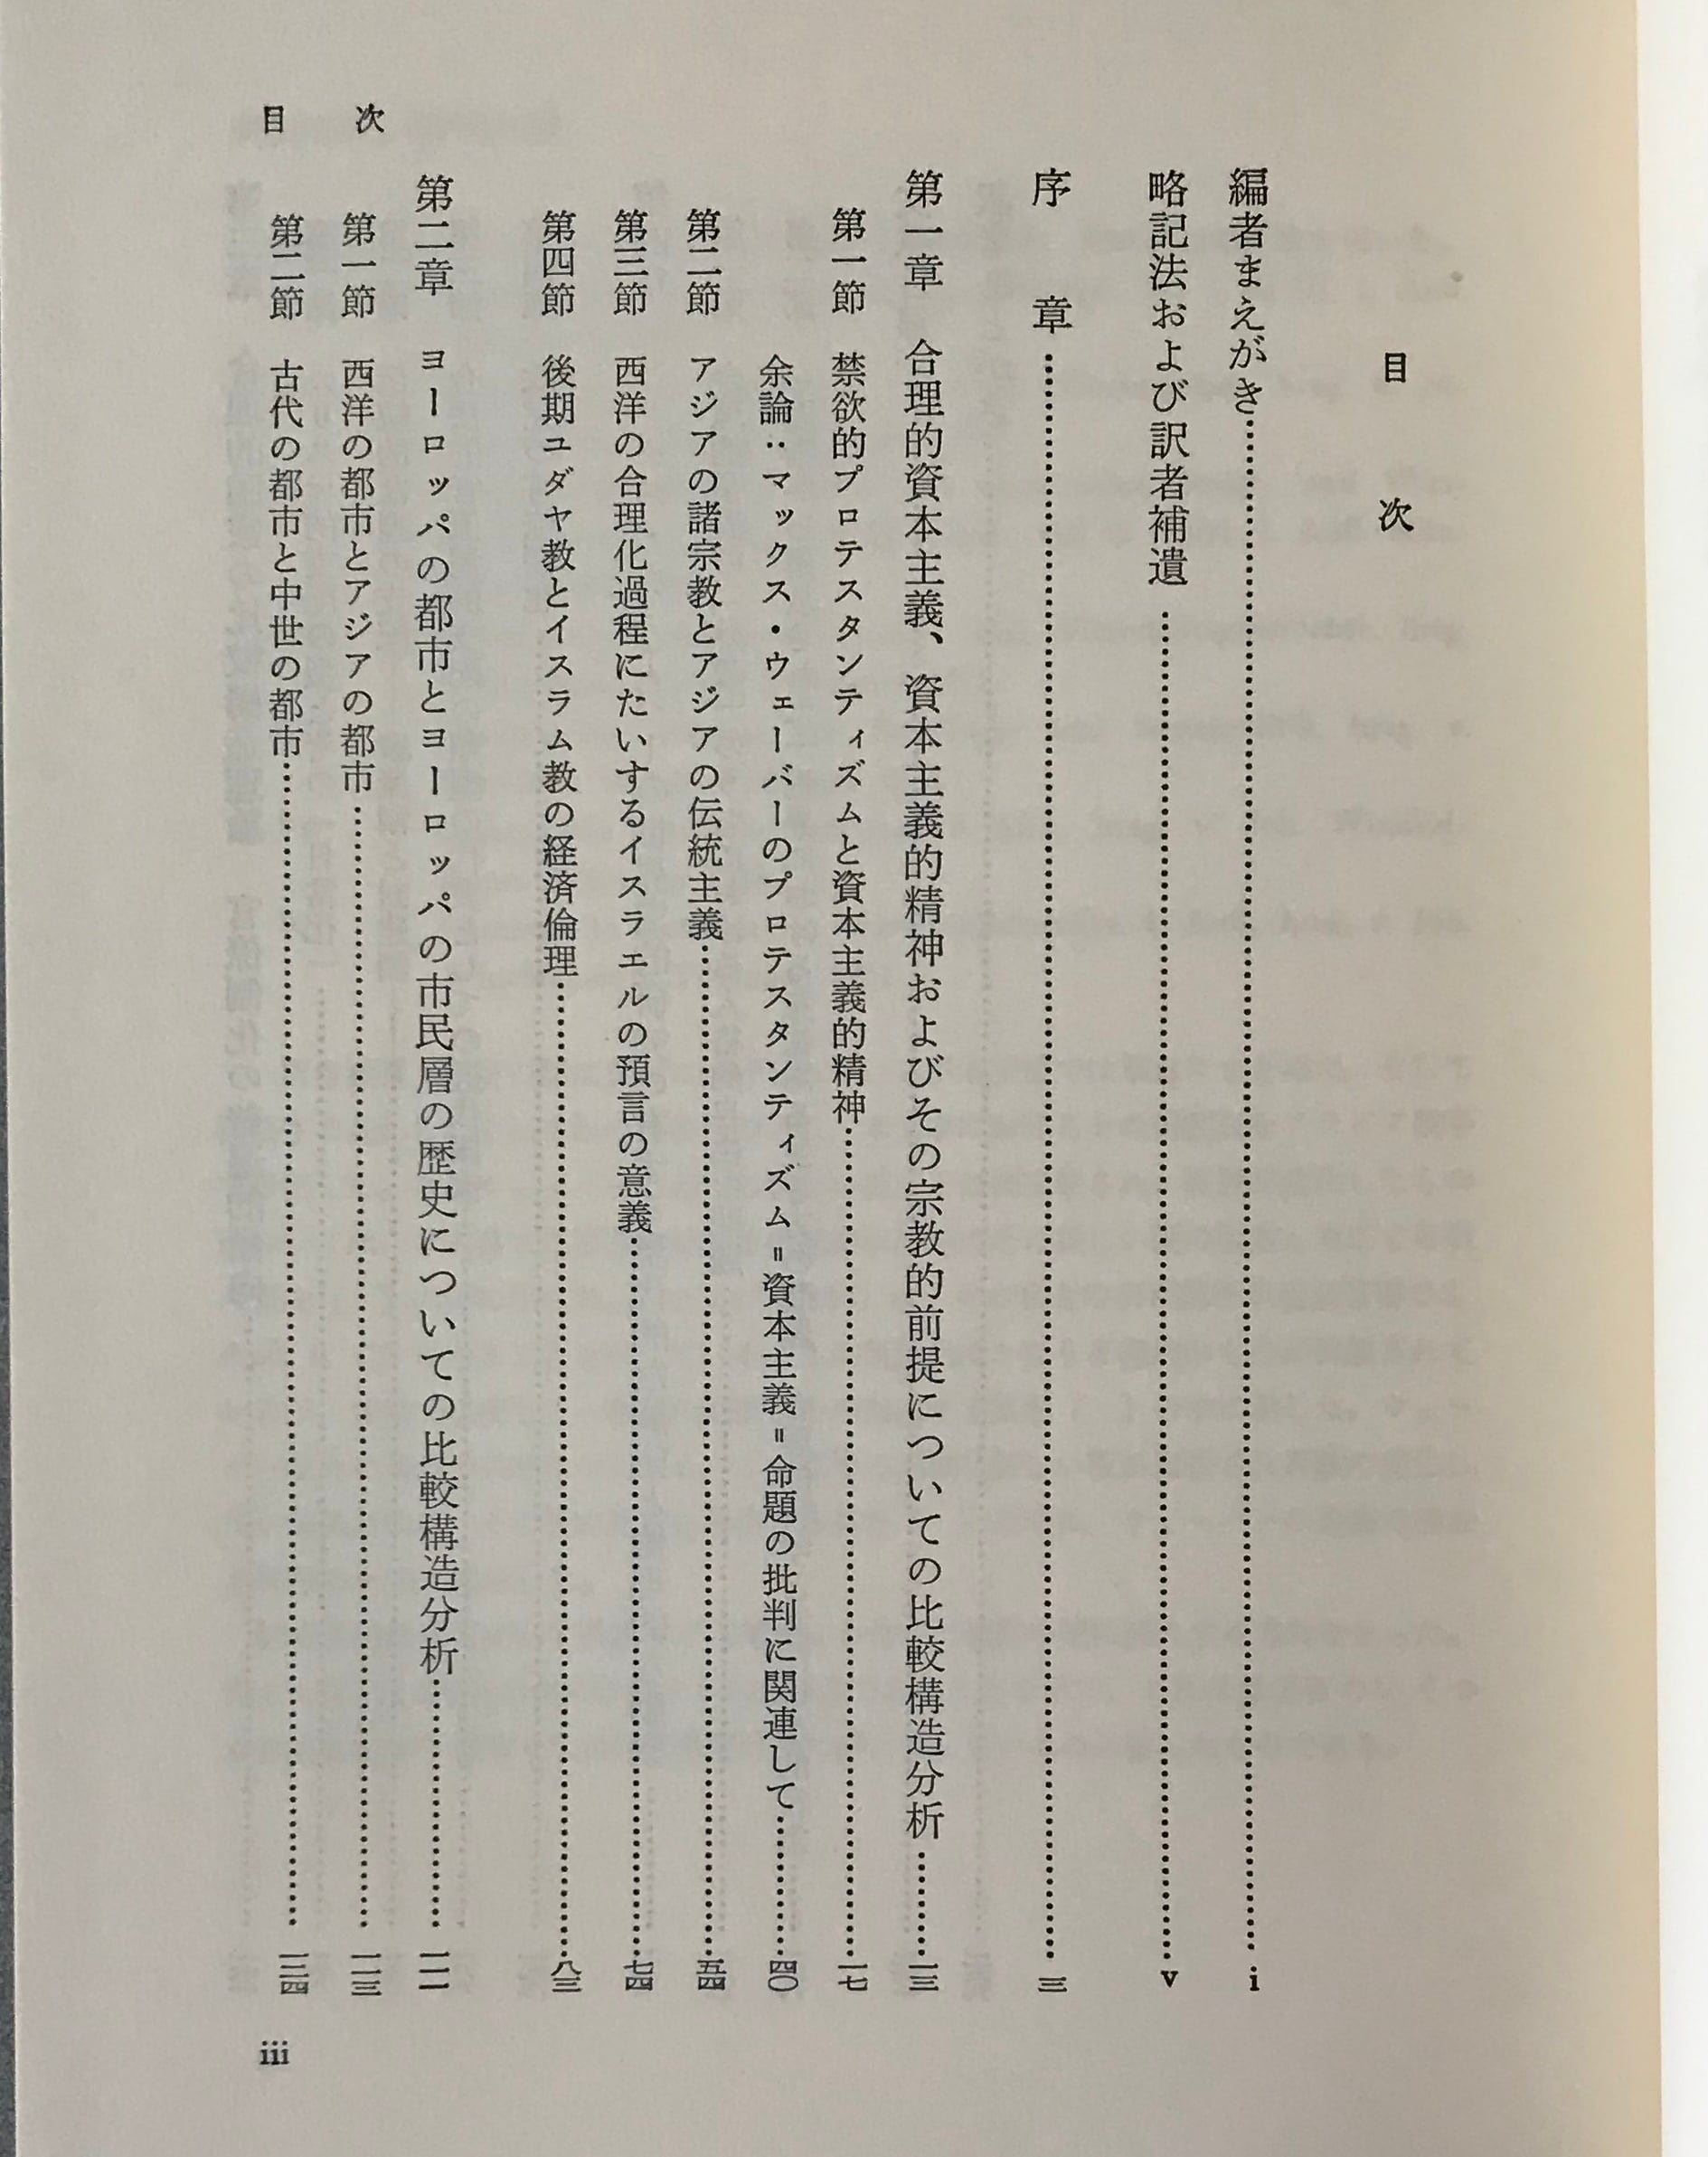 目次
編者まえがき……i
略記法および訳者補遺……v
序章……三
第一章 合理的資本主義、資本主義的精神およびその宗教的前提についての比較構造分析……一三
第一節 禁欲的プロテスタンティズムと資本主義的精神……一七
余論:マックス・ウェーバーのプロテスタンティズム=資本主義=命題の批判に関連して……四〇
第二節 アジアの諸宗教とアジアの伝統主義……五四
第三節 西洋の合理化過程にたいするイスラエルの預言の意義……七四
第四節 後期ユダヤ教とイスラム教の経済倫理……八三
第二章 ヨーロッパの都市とヨーロッパの市民層の歴史についての比較構造分析……一一一
第一節 西洋の都市とアジアの都市……一一三
第二節 古代の都市と中世の都市……一三四
目次
iii